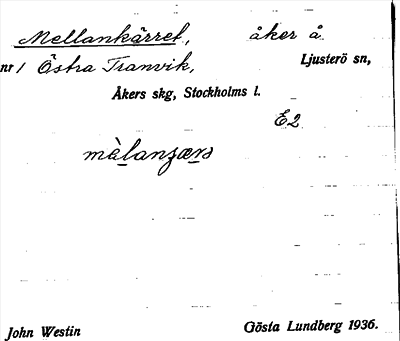 Mellankärret, åker å
nr 1 Östra Tranvik, Ljusterö sn,
Åkers skg, Stockholms l.
E2
John Westin Gösta Lundberg 1936.